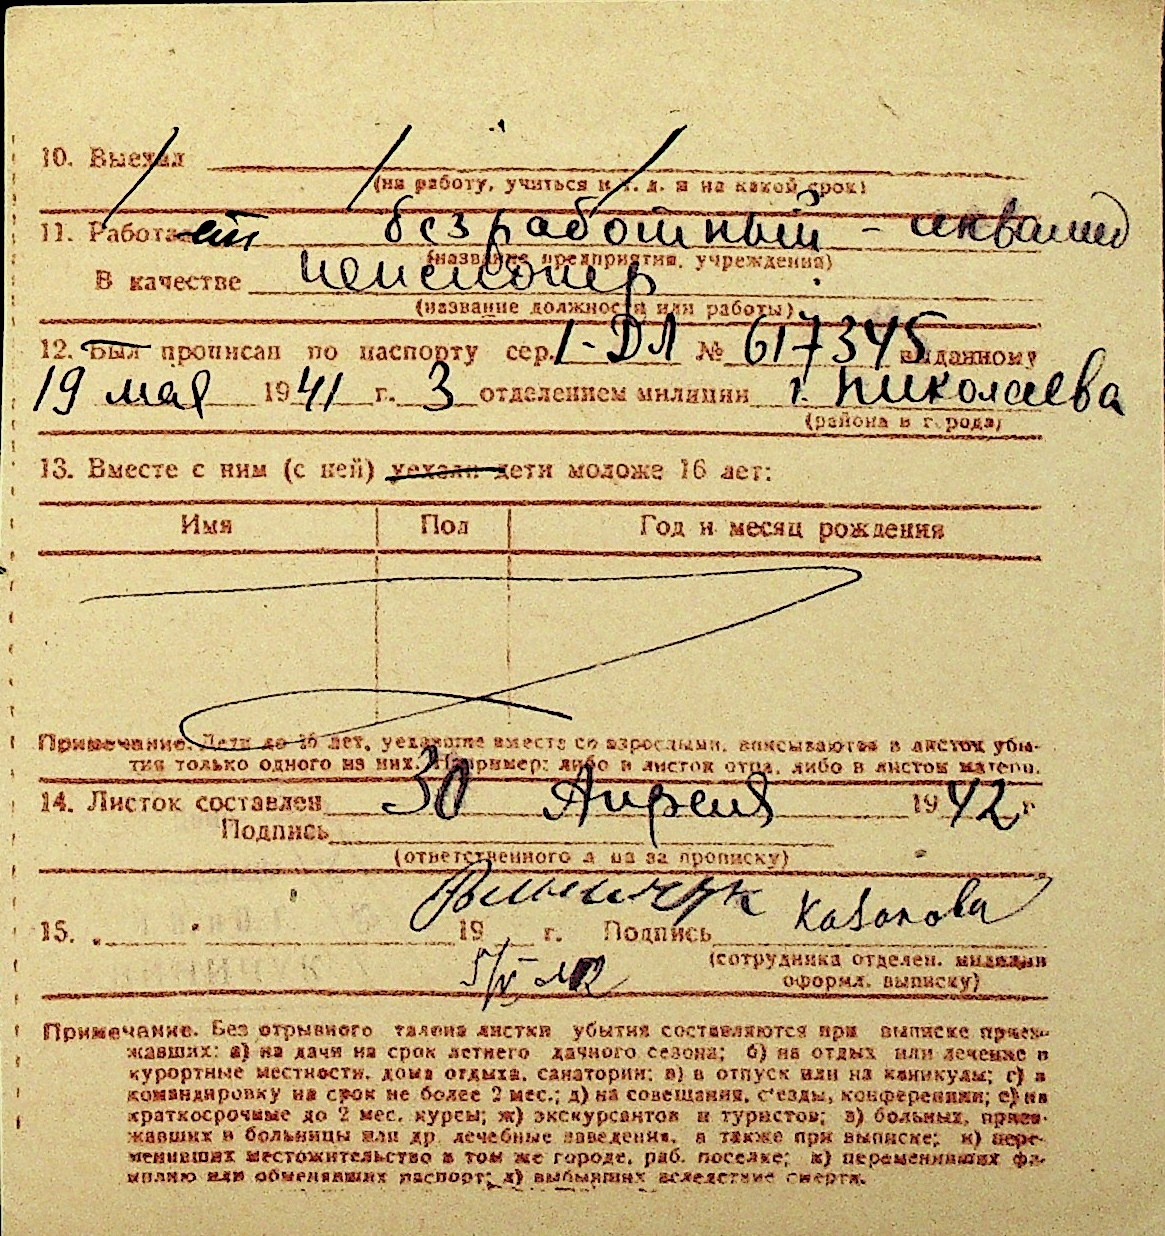 10. Выехал
(на работу, учиться и т. д. и на какой срок)
11. Работает безработный - инвалид
(название предприятия, учреждения)
В качестве пенсионер
(название должности или работы)
12. Был прописан по паспорту сер. I-ДЛ № 617345 выданному
19 мая 1941 г. 3 отделением милиции г. Николаева
(района и города)
13. Вместе с ним (с ней) уехали дети моложе 16 лет:
Имя Пол Год и месяц рождения
Примечание. Дети до 16 лет, уехавшие вместе со взрослыми, вписываются в листок убы-
тия только одного из них. Например: либо в листок отца, либо в листок матери.
14. Листок составлен 30 Апреля 1942 г
Подпись
(ответственного лица за прописку)
15. " " 19 г. Подпись Казакова
5/V 42
(сотрудника отделен. милиции
оформл. выписку)
Примечание. Без отрывного талона листки убытия составляются при выписке приез-
жавших: а) на дачи на срок летнего дачного сезона; б) на отдых или лечение в
курортные местности, дома отдыха, санатории; в) в отпуск или на каникулы; г) в
командировку на срок не более 2 мес.; д) на совещания, с'езды, конференции; е) на
краткосрочные до 2 мес. курсы; ж) экскурсантов и туристов; з) больных, приез-
жавших в больницы или др. лечебные заведения, а также при выписке; и) пере-
менивших местожительство в том же городе, раб. поселке; к) переменивших фа-
милию или обменявших паспорт; л) выбывших вследствие смерти.